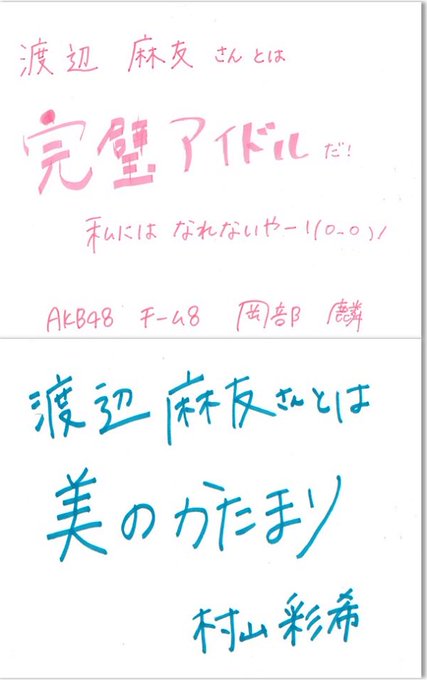 渡辺 麻友 さんとは
完璧アイドルだ!
私には なれないやー!(0_0)ノ
AKB48 チーム8 岡部 麟
渡辺 麻友さんとは
美のかたまり
村山彩希